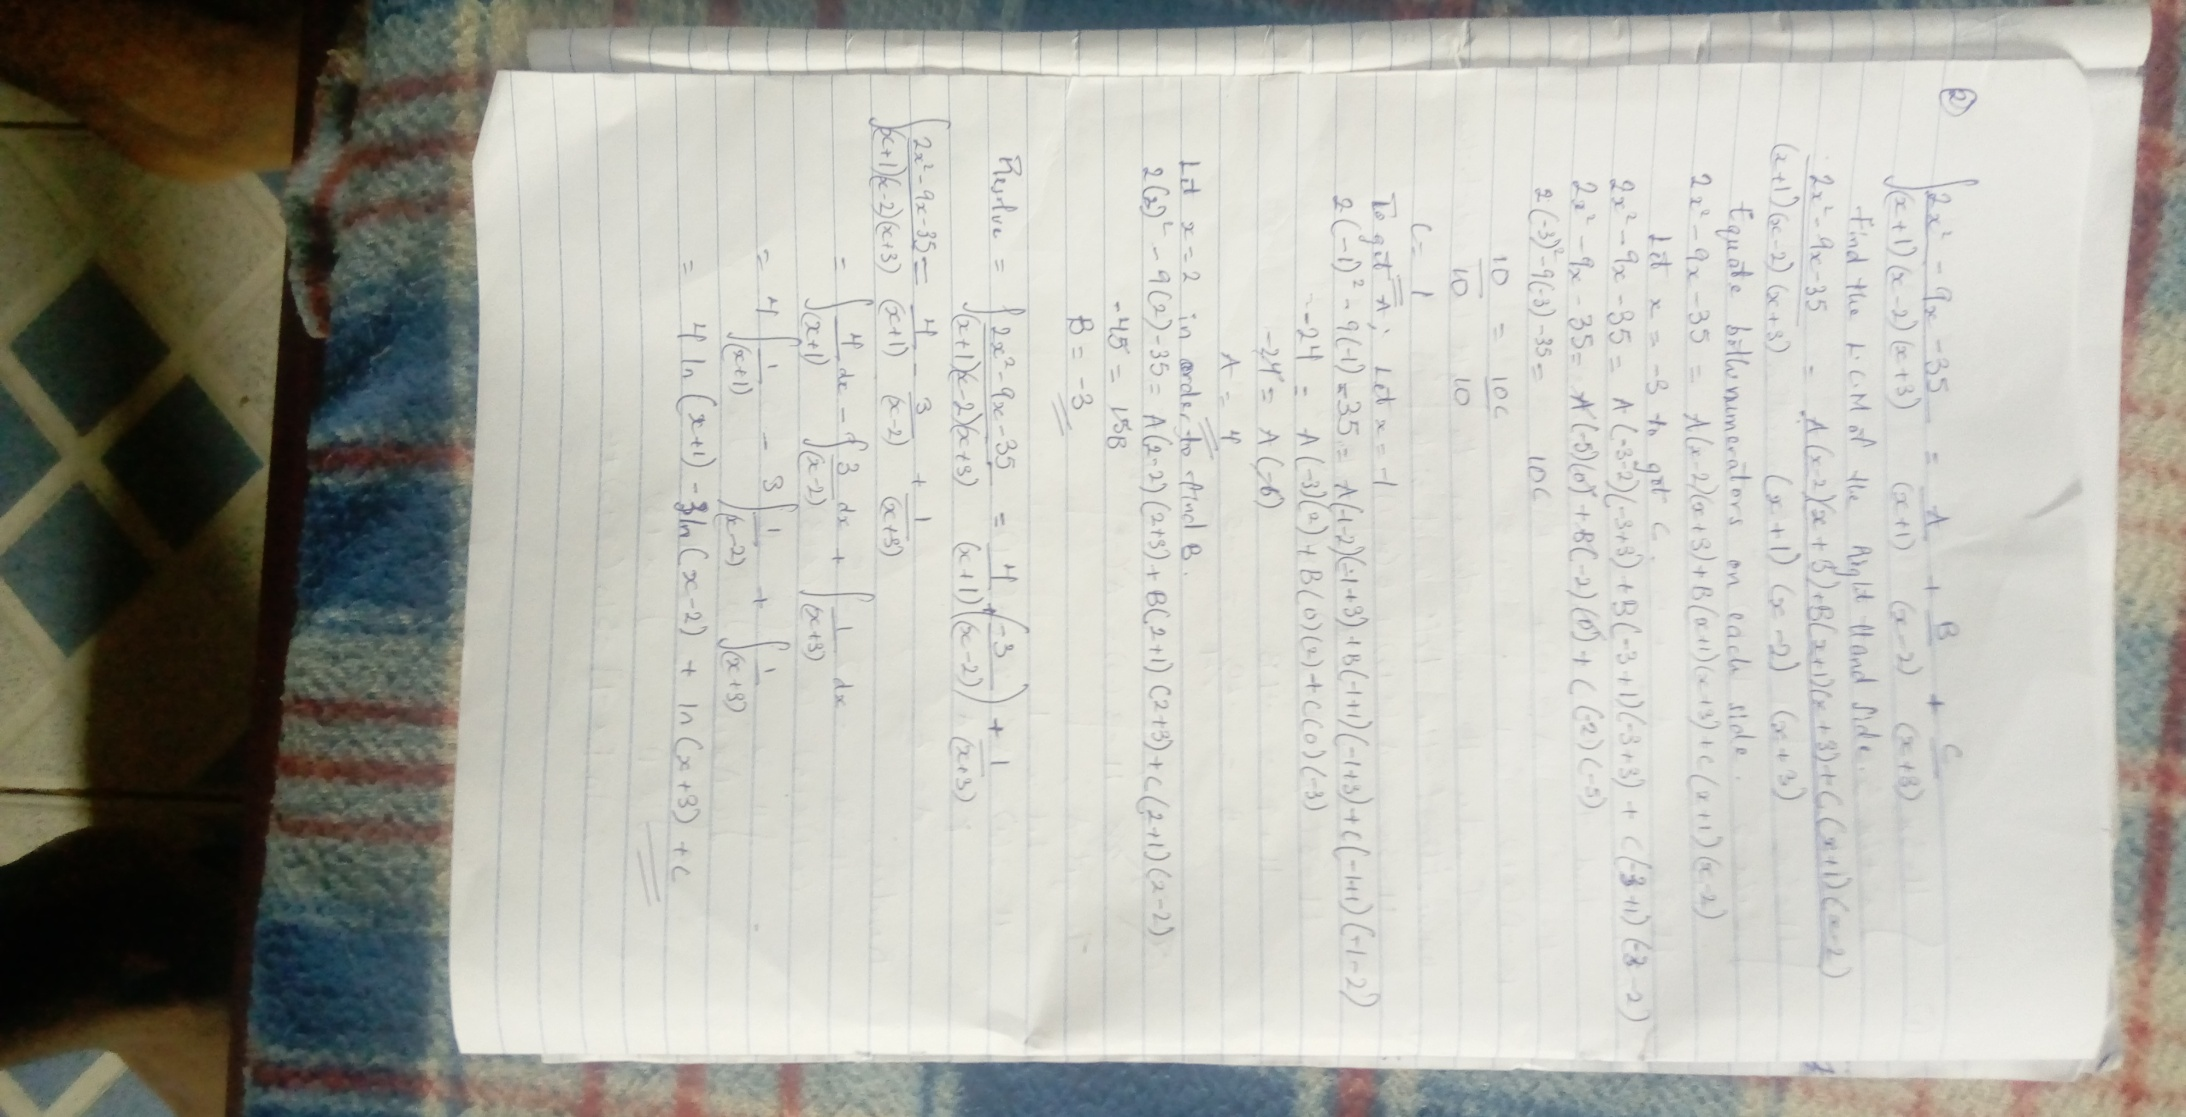 ② ∫ 2x² - 9x - 35 / (x+1)(x-2)(x+3) = A/(x+1) + B/(x-2) + C/(x+3)
Find the L.C.M of the Right Hand Side.
2x² - 9x - 35 / (x+1)(x-2)(x+3) = A(x-2)(x+3)+B(x+1)(x+3)+C(x+1)(x-2) / (x+1)(x-2)(x+3)
Equate both numerators on each side.
2x² - 9x - 35 = A(x-2)(x+3)+B(x+1)(x+3)+C(x+1)(x-2)
Let x = -3 to get C.
2x² - 9x - 35 = A(-3-2)(-3+3)+B(-3+1)(-3+3)+C(-3+1)(-3-2)
2x² - 9x - 35 = A(-5)(0)+B(-2)(0)+C(-2)(-5)
2(-3)² - 9(-3) - 35 = 10C
10/10 = 10C/10
C = 1
To get A; Let x = -1
2(-1)² - 9(-1) - 35 = A(-1-2)(-1+3)+B(-1+1)(-1+3)+C(-1+1)(-1-2)
-24 = A(-3)(2)+B(0)(2)+C(0)(-3)
-24 = A(-6)
A = 4
Let x = 2 in order to find B.
2(2)² - 9(2) - 35 = A(2-2)(2+3)+B(2+1)(2+3)+C(2+1)(2-2)
-45 = 15B
B = -3
Resolve = ∫ 2x² - 9x - 35 / (x+1)(x-2)(x+3) = 4/(x+1) + (-3/(x-2)) + 1/(x+3)
∫ 2x² - 9x - 35 / (x+1)(x-2)(x+3) = 4/(x+1) - 3/(x-2) + 1/(x+3)
= ∫ 4/(x+1) dx - ∫ 3/(x-2) dx + ∫ 1/(x+3) dx
= 4 ∫ 1/(x+1) - 3 ∫ 1/(x-2) + ∫ 1/(x+3)
= 4 ln(x+1) - 3ln(x-2) + ln(x+3) + C